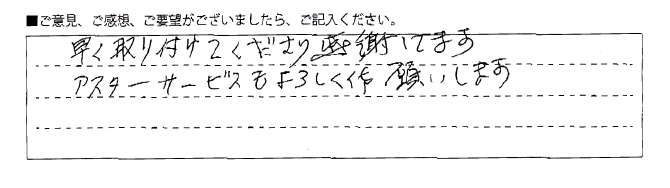 ■ご意見、ご感想、ご要望がございましたら、ご記入ください。
早く取り付けてくださり感謝してます
アスターサービスもよろしくお願いします